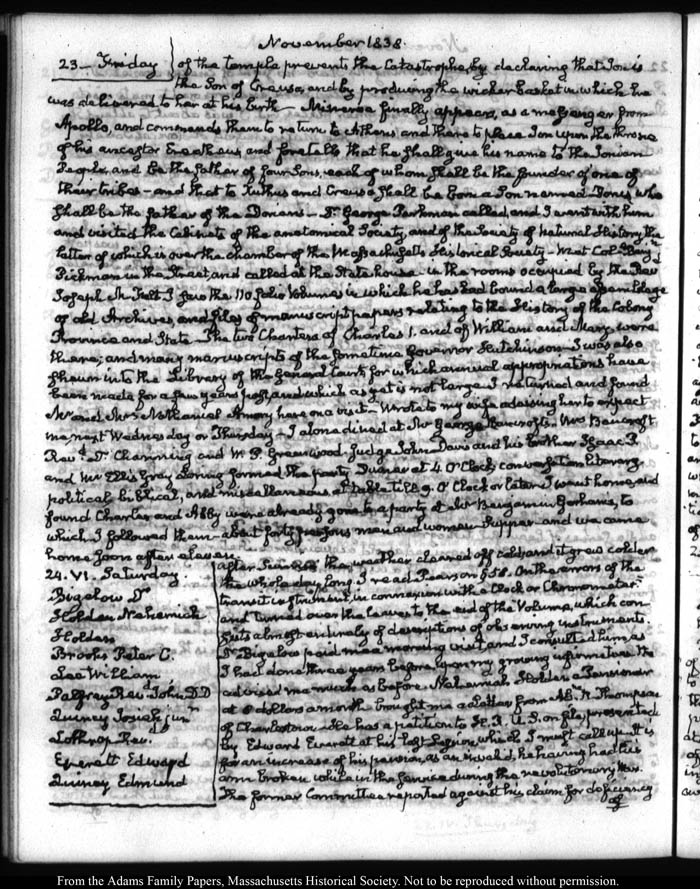 November 1838.
23 – Friday } of the temple prevents the Catastrophe, by declaring that Ion is
the Son of Creusa, and by producing the wicker basket in which he
was delivered to her at his birth – Minerva finally appears, as a messenger from
Apollo, and commands them to return to Athens and there to place Ion upon the throne
of his ancestor Erectheus, and foretells that he shall give his name to the Ionian
People, and be the father of four Sons, each of whom shall be the founder of one of
their tribes – and that to Xuthus and Creusa shall be born a Son named Dorus, who
shall be the father of the Dorians – Dr. George Parkman called, and I went with him
and visited the Cabinets of the anatomical Society, and of the Society of Natural History, the
latter of which is over the chamber of the Massachusetts Historical Society – Met Coll. Benjn.
Pickman in the Street and called at the State house – in the rooms occupied by the Revd.
Joseph B. Felt I saw the 110 folio Volumes in which he has had bound a large assemblage
of old Archives, and files of manuscript papers relating to the History of the Colony
Province and State. The two Charters of Charles 1. and of William and Mary were
there; and many manuscripts of the sometime Governor Hutchinson – I was also
shewn into the Library of the General Court, for which annual appropriations have
been made for a few years past, and which as yet is not large. I returned and found
Mr. and Mrs. Nathaniel Amory here on a visit – Wrote to my wife advising her to expect
me next Wednesday or Thursday – I alone dined at Mr George Bancroft's. Mrs Bancroft
Revd. Dr. Channing and W. P. Greenwood – Judge John Davis and his brother Isaac P.
and Mr Ellis Gray Loring formed the party. Dinner at 4 O'Clock, conversation literary,
political biblical, and miscellaneous at table till 9. O'Clock or later I went home, and
found Charles and Abby were already gone to a party at Mr Benjamin Gorham's, to
which I followed them – about forty persons men and women – Supper – and we came
home soon after eleven.
24. VI. Saturday.
Bigelow Dr
Holden Nehemiah
Holden
Brooks Peter C.
Lee William
Palfrey Revd John D.D
Quincy Josiah junr
Lothrop Revd.
Everett Edward
Quincy Edmund
After Sunrise the weather cleared off cold, and it grew colder
the whole day long. I read Pearson §58. On the errors of the
transit instrument, in connexion with a Clock or Chronometer
and turned over the leaves to the end of the Volume, which con-
sists almost entirely of descriptions of observing instruments.
Dr Bigelow paid me a morning visit and I consulted him as
I had done three years before, upon my growing infirmities. He
advised me much as before. Nehemiah Holden a Pensioner
at 8 dollars a month brought me a Letter from Ab. R. Thompson
of Charlestown – He has a petition to H. R. U. S. on file, presented
by Edward Everett at his last Session which I must call up. It is
for an increase of his pension, as an invalid, he having had his
arm broken while in the service during the revolutionary War.
The former Committee reported against his claim for deficiency
of
From the Adams Family Papers, Massachusetts Historical Society. Not to be reproduced without permission.